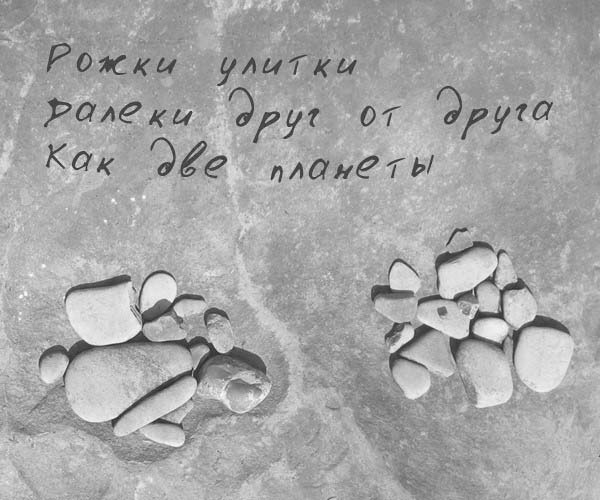 Рожки улитки
Далеки друг от друга
Как две планеты